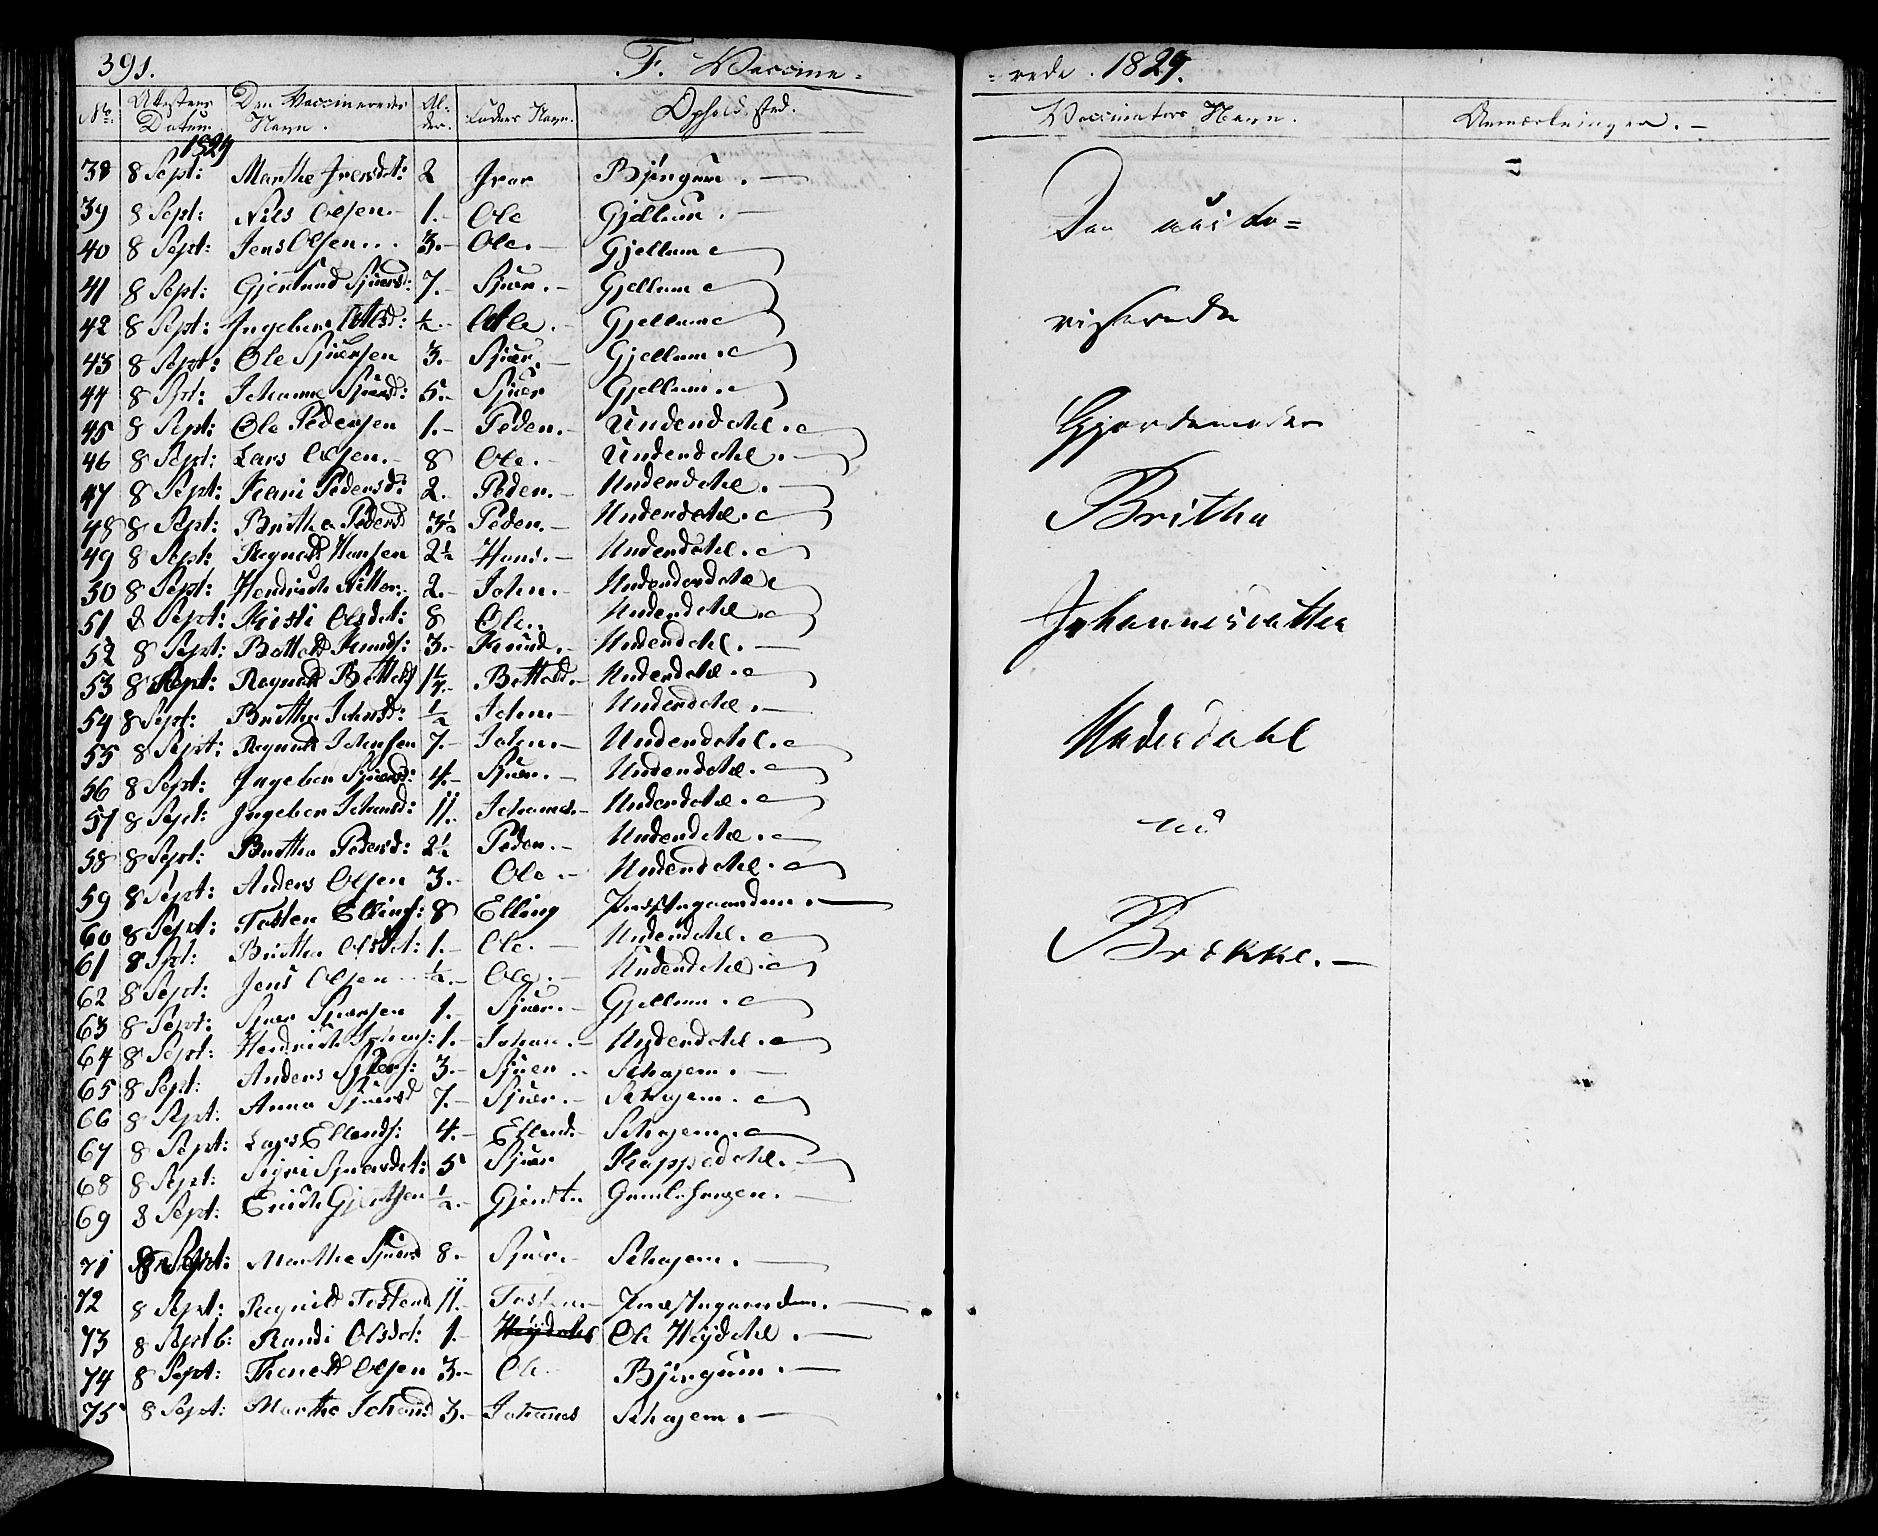 391. F. Vaccine=
=rede. 1829.
No. Attestens Datum Den Vaccineredes Navn. Al: der. Faders Navn. Opholdssted.
Vaccinators Navn. Anmærkninger. -
1829
38 8 Sept: Marthe Iversdt: 2 Iver Bjørgum. -
39 8 Sept: Nils Olsen. 1. - Ole Gjellum. -
40 8 Sept: Jens Olsen... 3. - Ole. - Gjellum
41 8 Sept: Gjertrud Sjursd: 7. - Sjur. - Gjellum
42 8 Sept: Ingebor Olsd: ½. - Ole. - Gjellum
43 8 Sept: Ole Sjursen 3. - Sjur. - Gjellum.
44 8 Spt: Johanne Sjursd: 5. - Sjur Gjellum.
45 8 Sept: Ole Pedersen 1. - Peder. - Underdahl.
46 8 Sept: Lars Olsen. - 8 Ole. - Underdahl.
47 8 Sept: Kari Pedersd: 2. Peder. - Underdahl.
48 8 Sept: Britha Pedersd 3½ Peder. - Underdahl.
49 8 Sept: Hansen 2½ Hans. - Underdahl.
50 8 Sept: Hendrich 2. - John. - Underdahl
51 8 Sept: Kristi Olsdt: 8 Ole.. Underdahl.
52 8 Sept: Bottold Knuds: 3. - Knud. - Underdahl. -
53 8 Sept: Ragnild Bottolds 1½. - Bottold. - Underdahl.
54 8 Sept: Britha Johnsd: ½ John - Underdahl. -
55 8 Sept: Johnsen 7. - John. - Underdahl.
56 8 Sept: Ingebor Sjursd: 4. - Sjur. - Underdahl.
57 8 Sept: Ingebor Johansd: 11. Johannes. - Underdahl.
58 8 Sept: Britha Pedersd: 2½ Peder. - Underdahl.
59 8 Sept: Anders Olsen 3. - Ole. - Underdahl.
60 8 Sept: Tosten Ellings: 8 Elling Præstegaarden. -
61 8 Spt: Britha Olsdt: 1. - Ole. - Underdahl.
62 8 Sept: Jens Olsen ½. - Ole. - Underdahl.
63 8 Sept: Sjur Sjursen 1. Sjur. - Gjellum.
64 8 Sept: Hendrich Johans: 1. - Johan. - Underdahl.
65 8 Sept: Anders Sjurs: 3. - Sjur.. Schajem. -
66 8 Sept: Anna Sjursd 7. - Sjur. - Schajem.
67 8 Sept: Lars Ellends: 4. - Ellend. - Schajem.
68 8 Sept: Sigri Sjursdt: 5 Sjur Kappedahl. -
69 8 Sept: Erich Gjertsen ½. - Gjert
71 8 Sept: Marthe Sjursd 8. - Sjur. - Schajem. -
72 8 Sept: Ragnild Tostend 11. - Tosten. - Præstegaarden. -
73 8 Septb: Randi Olsdt: 1. - Høydahl Ole Høydahl. -
74 8 Sept: Olsen 3. - Ole Bjørgum. -
75 8 Sept: Marthe Johansd 3. - Johanes Schajem. -
Den autho=
riserede
Gjordemoder
Britha
Johannesdatter
Underdahl
Brække. -